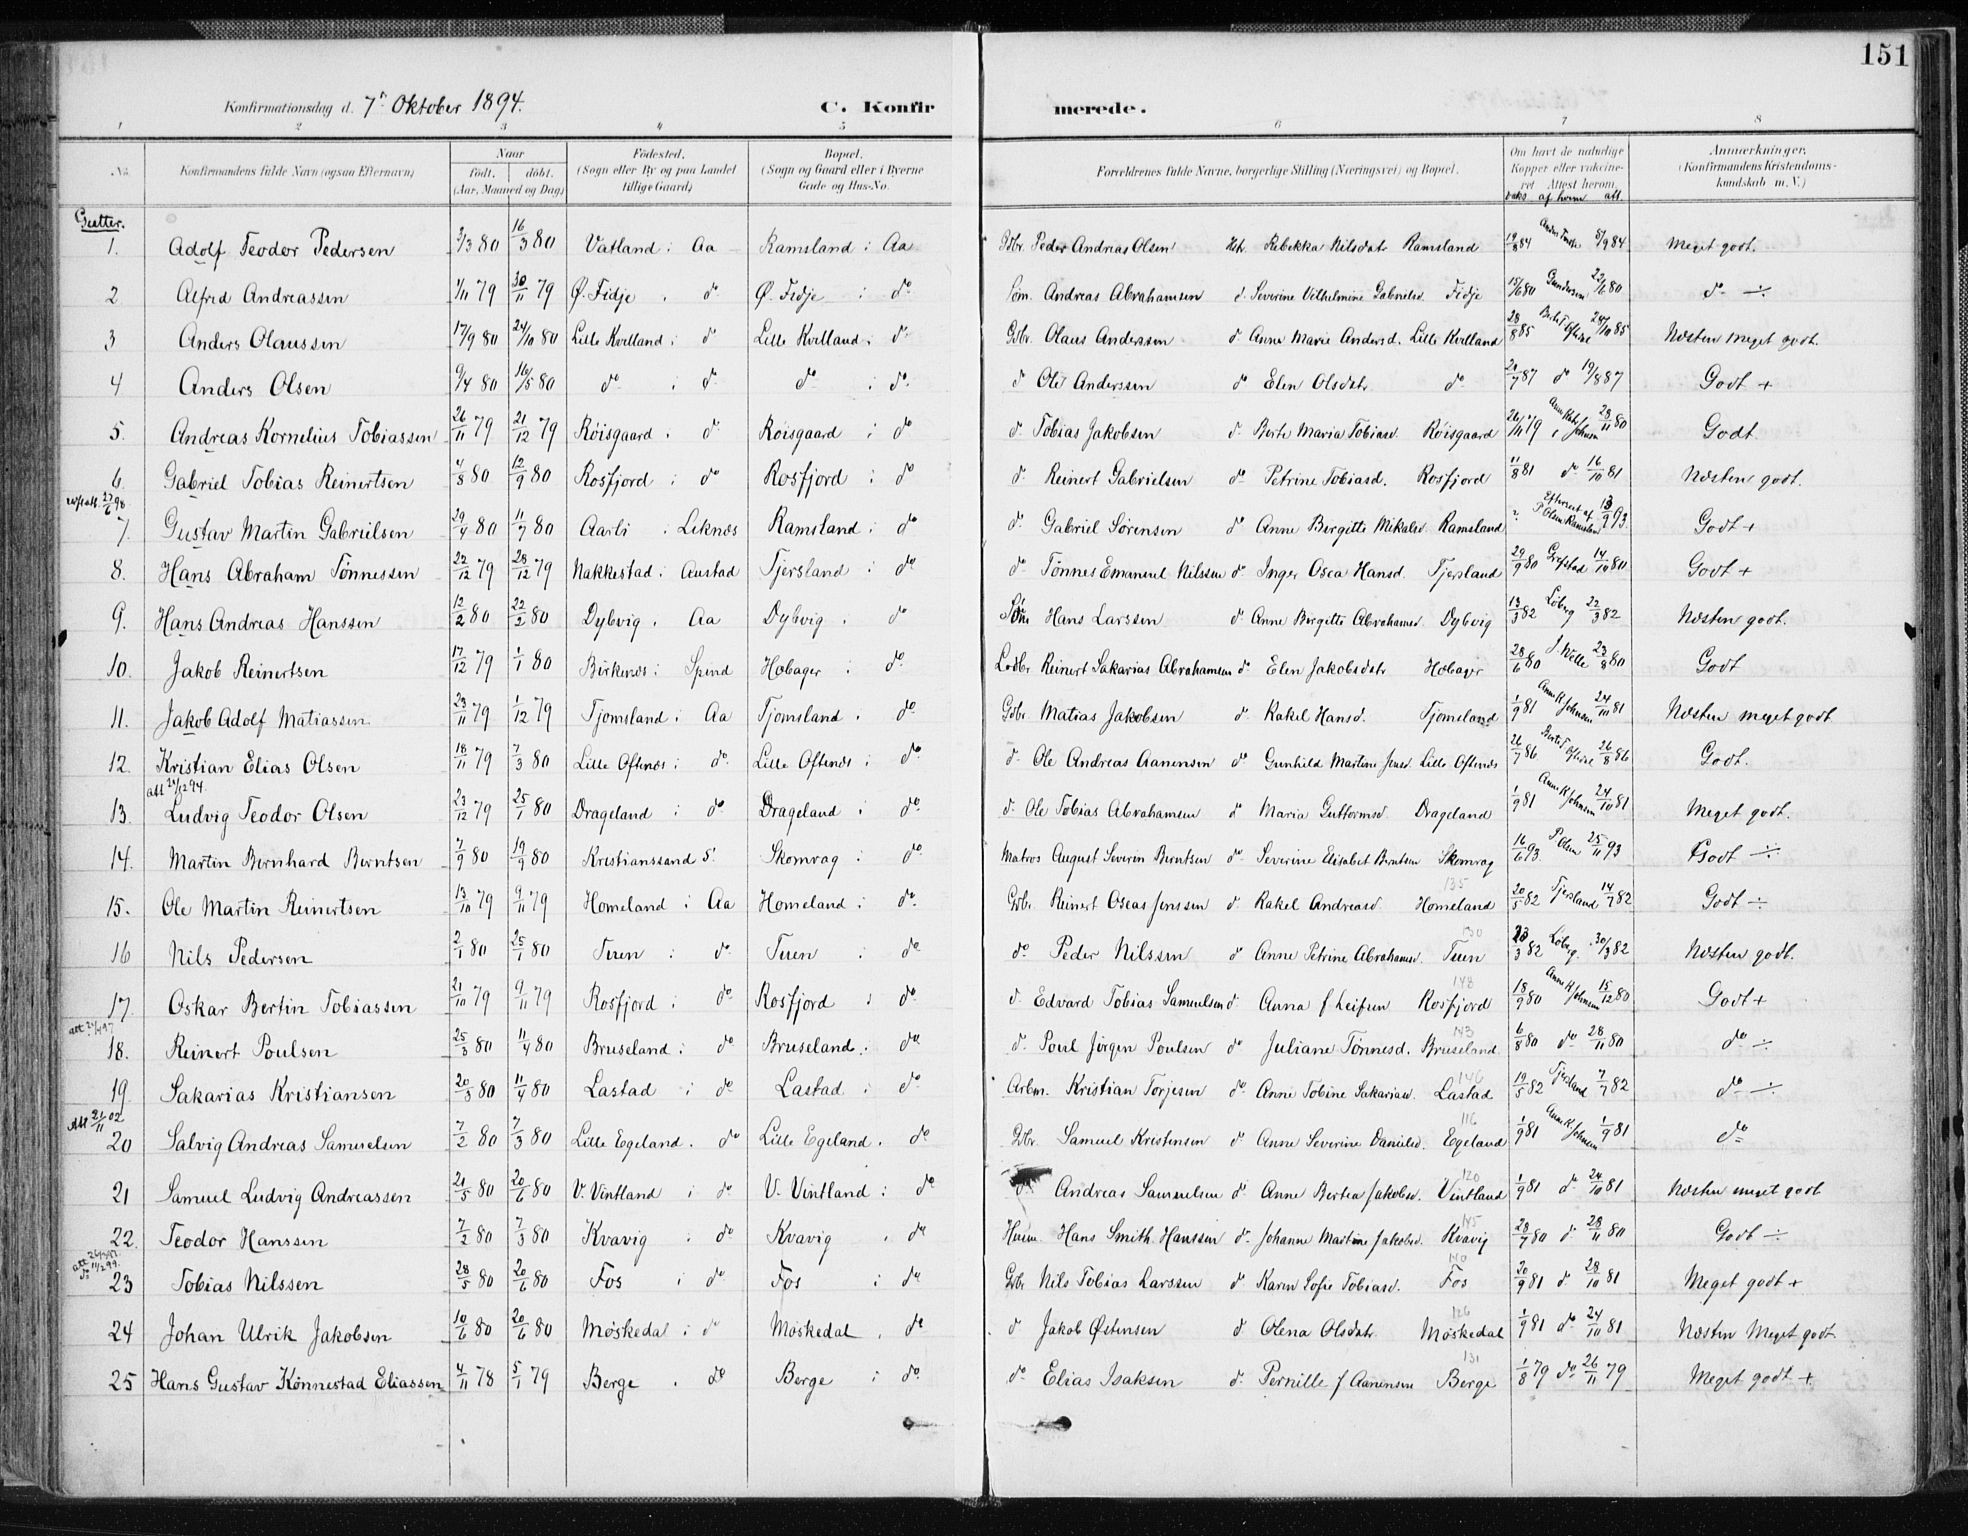 151
Konfirmationsdag d. 7de Oktober 1894. C. Konfirmerede.
1 2 3 4 5 6 7 8
No. Konfirmandens fulde Navn (ogsaa Efternavn) Naar født. døbt. (Aar, Maaned og Dag) Fødested. (Sogn eller By og paa Landet tillige Gaard) Bopæl. (Sogn og Gaard eller i Byerne Gade og Hus-No. Forældrenes fulde Navne, borgerlige Stilling (Næringsvei) og Bopæl. Om havt de naturlige Kopper eller vakcineret. Attest herom. vaks. af hvem att. Anmærkninger. (Konfirmandens Kristendomskundskab m. V.)
Gutter.
1. Adolf Teodor Pedersen 2/3 80 16/3 80 Vatland i Aa Ramsland i Aa Gdbr. Peder Andreas Olsen Hstr. Rebekka Nilsdatr Ramsland 19/8 84 8/9 84 Meget godt.
2 Alfred Andreassen 1/11 79 30/11 79 Ø. Fidje . do Ø. Fidje : do Søm. Andreas Abrahamsen d. Severine Vilhelmine Gabrielsd. Fidje 15/6 80 Gundersen 22/6 80 do ÷
3 Anders Olaussen 17/9 80 24/10 80 Lille Kvilland i do Lille Kvilland i do Gdbr. Olaus Anderssen do Anne Marie Andersd. Lille Kvilland 28/8 85 24/10 85 Næsten meget godt.
4 Anders Olsen 9/4 80 16/5 80 do i do do i do d Ole Anderssen do Elen Olsdatr. do 20/7 87 do 19/8 87 Godt +
5. Andreas Kornelius Tobiassen 26/11 79 21/12 79 Røisgaard i do Røisgaard i do d. Tobias Jakobsen d. Berte Maria Tobiasd. Røisgaard 26/11 79 28/11 80 Godt.
6. Gabriel Tobias Reinertsen 4/8 80 12/9 80 Rosfjord i do Rosfjord i do d. Reinert Gabrielsen do Petrine Tobiasd. Rosfjord 11/8 81 do 16/10 81 Næsten godt.
7. Gustav Martin Gabrielsen 29/4 80 11/7 80 Aarli i Leknæs Ramsland i do d. Gabriel Sørensen do Anne Birgitte Mikalsd. Ramsland ? Efterseet af P Olsen Ramsland 13/9 93. Godt +
8. Hans Abraham Tønnessen 22/12 79 28/12 79 Nakkestad i Austad Tjersland i do do Tønnes Emanuel Nilssen do Inger Osea Hansd. Tjersland 29/9 80 Grefstad 14/10 80 Godt +
9. Hans Andreas Hanssen 12/2 80 22/2 80 Dybvig . Aa Dybvig . do Søm Hans Larssen d. Anne Birgitte Abrahamsd Dybvig 13/3 82 Løberg 22/3 82 Næsten godt.
10. Jakob Reinertsen 17/12 79 1/1 80 Birkenæs i Spind Hobager i do Lodbr. Reinert Sakarias Abrahamsen d. Elen Jakobsdatr Hobager 28/6 80 J. Welle 23/8 80 Godt
11. Jakob Adolf Matiassen 23/11 79 1/12 79 Tjomsland i Aa Tjomsland . do Gdbr Matias Jakobsen d. Rakel Hansd. Tjomsland 1/9 81 Anne K Johnsen 24/10 81 Næsten meget godt
12. Kristian Elias Olsen 18/11 79 7/3 80 Lille Oftenæs i do Lille Oftenæs i do d. Ole Andreas Aanensen do Gunhild Martine Jensd. Lille Oftenæs 26/7 86 26/8 86 Godt.
att 21/12 94.
13. Ludvig Teodor Olsen 23/12 79 25/1 80 Drageland i do Drageland i do d. Ole Tobias Abrahamsen d Maria Guttormsd. Drageland 1/9 81 Anne K Johnsen 24/10 81 Meget godt.
14. Martin Bernhard Berntsen 7/9 80 19/9 80 Kristianssand S. Skomrag : do Matros August Severin Berntsen do Severine Elisabet Berntsen Skomrag 16/6 93. P Olsen 25/11 93 Godt ÷
15. Ole Martin Reinertsen 13/10 79 9/11 79 Homeland i Aa Homeland i do Gdbr. Reinert Oseas Jenssen d. Rakel Andreasd. Homeland 135 20/5 82 Tjersland 14/7 82 Godt ÷
16 Nils Pedersen 2/1 80 25/1 80 Tuen i do Tuen : do do Peder Nilssen d Anne Petrine Abrahamsd. Tuen 130 23/3 82 Løberg 30/3 82 Næsten godt.
17. Oskar Bertin Tobiassen 21/10 79 9/11 79 Rosfjord i do Rosfjord i do d. Edvard Tobias Samuelsen d. Anna f Leifsen Rosfjord 148 18/9 80 Anne K Johnsen 15/12 80 Godt +
18. Reinert Poulsen 25/3 80 11/4 80 Bruseland i do Bruseland . do d. Poul Jørgen Poulsen do Juliane Tønnesd. Bruseland 143 6/8 80 do 28/11 80 do ÷
19. Sakarias Kristiansen 20/3 80 11/4 80 Lastad i do Lastad i do Arbm. Kristian Torjesen do Anne Tobine Sakariasd. Lastad 146 19/5 82 Tjersland 7/7 82 do ÷
Att 21/11 02
20 Salvig Andreas Samuelsen 7/2 80 7/3 80 Lille Egeland . do Lille Egeland . do Gdbr. Samuel Kristensen d Anne Severine Danielsd. Egeland 116 1/9 81 Anne K Johnsen 1/9 81 do
21 Samuel Ludvig Andreassen 21/5 80 20/6 80 V. Vintland i do V. Vintland : do d. Andreas Samuelsen d. Anne Bertea Jakobsd. Vintland 120 1/9 81 d. 24/10 81 Næsten meget godt
22. Teodor Hanssen 7/2 80 7/3 80 Kvavig i do Kvavig . do Husm. Hans Smith Hanssen d. Johanne Martine Jakobsd. Kvavig 145 28/7 80 d 28/11 80 Godt ÷
23 Tobias Nilssen 28/5 80 20/6 80 Fos i do Fos i do Gdbr Nils Tobias Larssen d Karen Sofie Tobiasd. Fos 140 20/9 81 d 28/10 81 Meget godt +
24 Johan Ulrik Jakobsen 10/6 80 20/6 80 Møskedal i do Møskedal . do d Jakob Østensen d Olena Olsdatr. Møskedal 126 1/9 81 do 24/10 81 Næsten Meget godt
25 Hans Gustav Kønnestad Eliassen 4/11 78 5/1 79 Berge . do Berge i do do Elias Isaksen d. Pernille f Aanensen Berge 131 1/8 79 do 26/11 79 Meget godt +